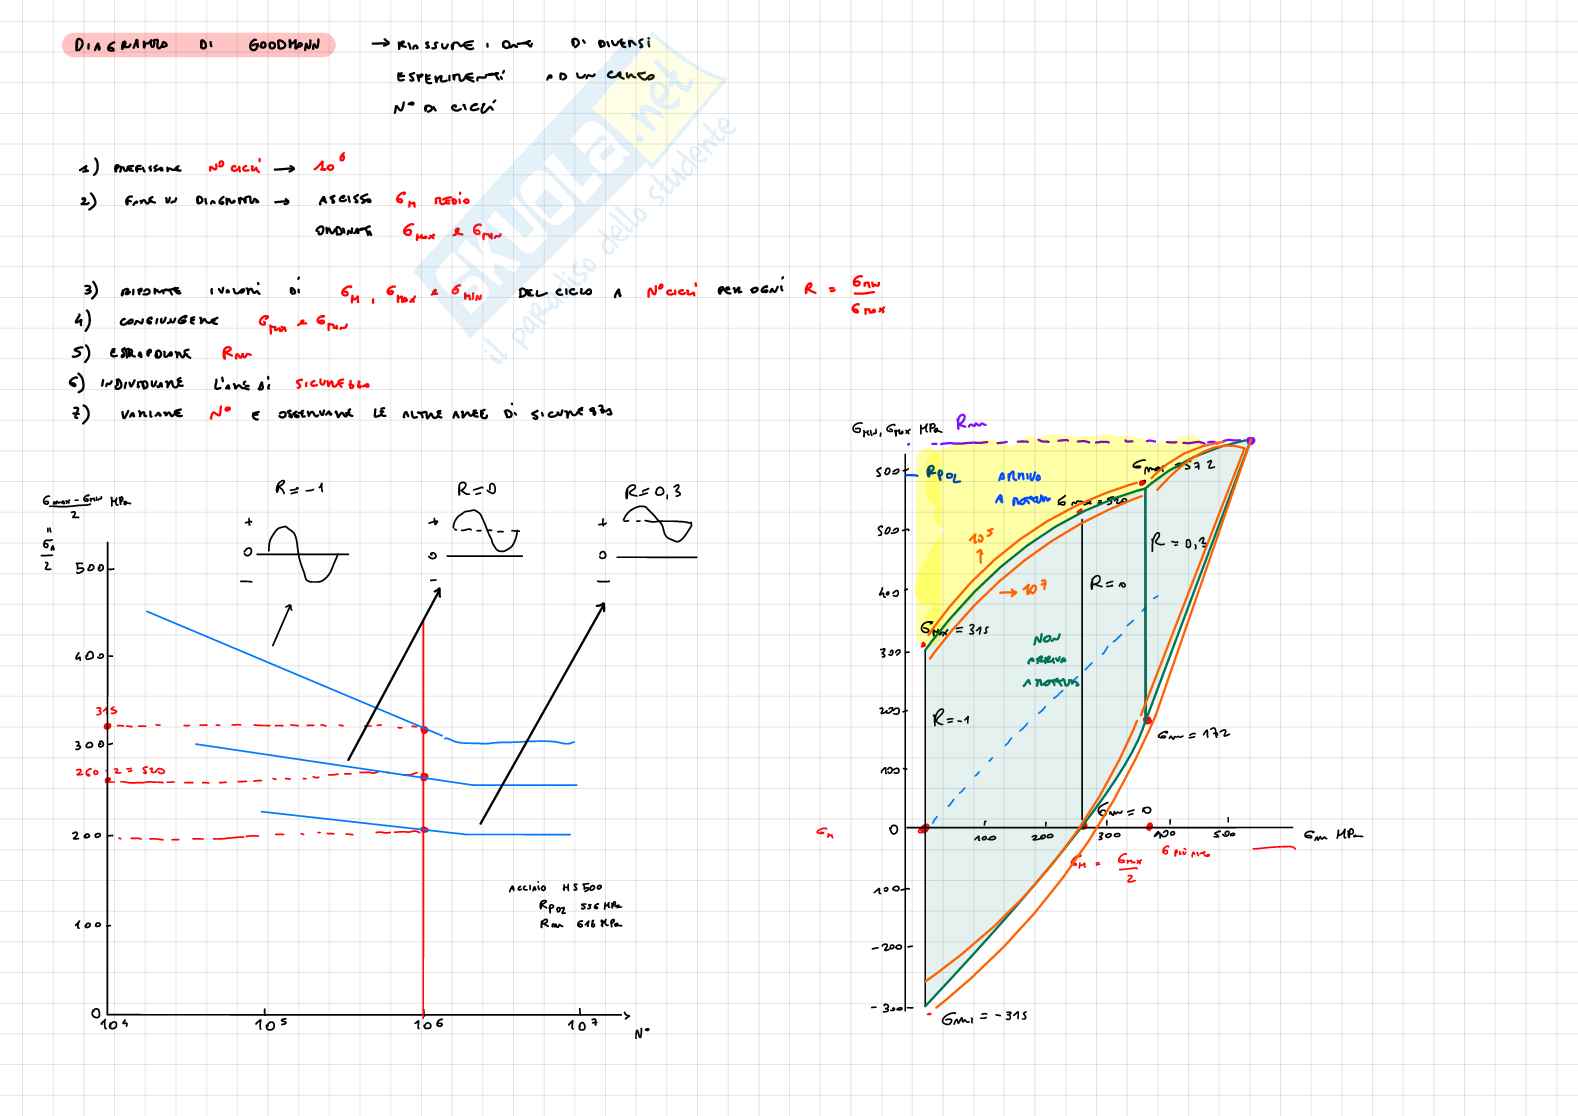 DIAGRAMMA DI GOODMANN → RIASSUME I DATI DI DIVERSI
ESPERIMENTI AD UN CERTO
N° DI CICLI
1) PREFISSARE N° CICLI → 10⁶
2) FARE UN DIAGRAMMA → ASCISSA σM MEDIO
ORDINATE σMAX e σMIN
3) RIPORTARE I VALORI DI σM, σMAX e σMIN DEL CICLO A N° CICLI PER OGNI R = σMIN / σMAX
4) CONGIUNGERE σMAX e σMIN
5) ESTRAPOLARE Rm
6) INDIVIDUARE L'AREA DI SICUREZZA
7) VARIARE N° E OSSERVARE LE ALTRE AREE DI SICUREZZA
SKUOLA.net
il paradiso dello studente
σMAX - σMIN / 2 MPa
"
σA / 2
R = -1
R = 0
R = 0,3
+
0
-
+
0
-
+
0
-
500
400
315
300
260 · 2 = 520
200
100
0
10⁴
10⁵
10⁶
10⁷
N°
ACCIAIO HS 500
Rp02 556 MPa
Rm 616 MPa
σMIN, σMAX MPa Rm
500
Rp02
ARRIVO
A ROTTURA
σMAX = 572
σMAX = 520
500
10⁵
R = 0,3
→ 10⁷
R = 0
400
σMAX = 315
NON
ARRIVA
A ROTTURA
300
200
R = -1
σMIN = 172
100
σMIN = 0
σM
0
100
200
300
400
500
σM MPa
σM = σMAX / 2
100
-200
-300
σMIN = -315